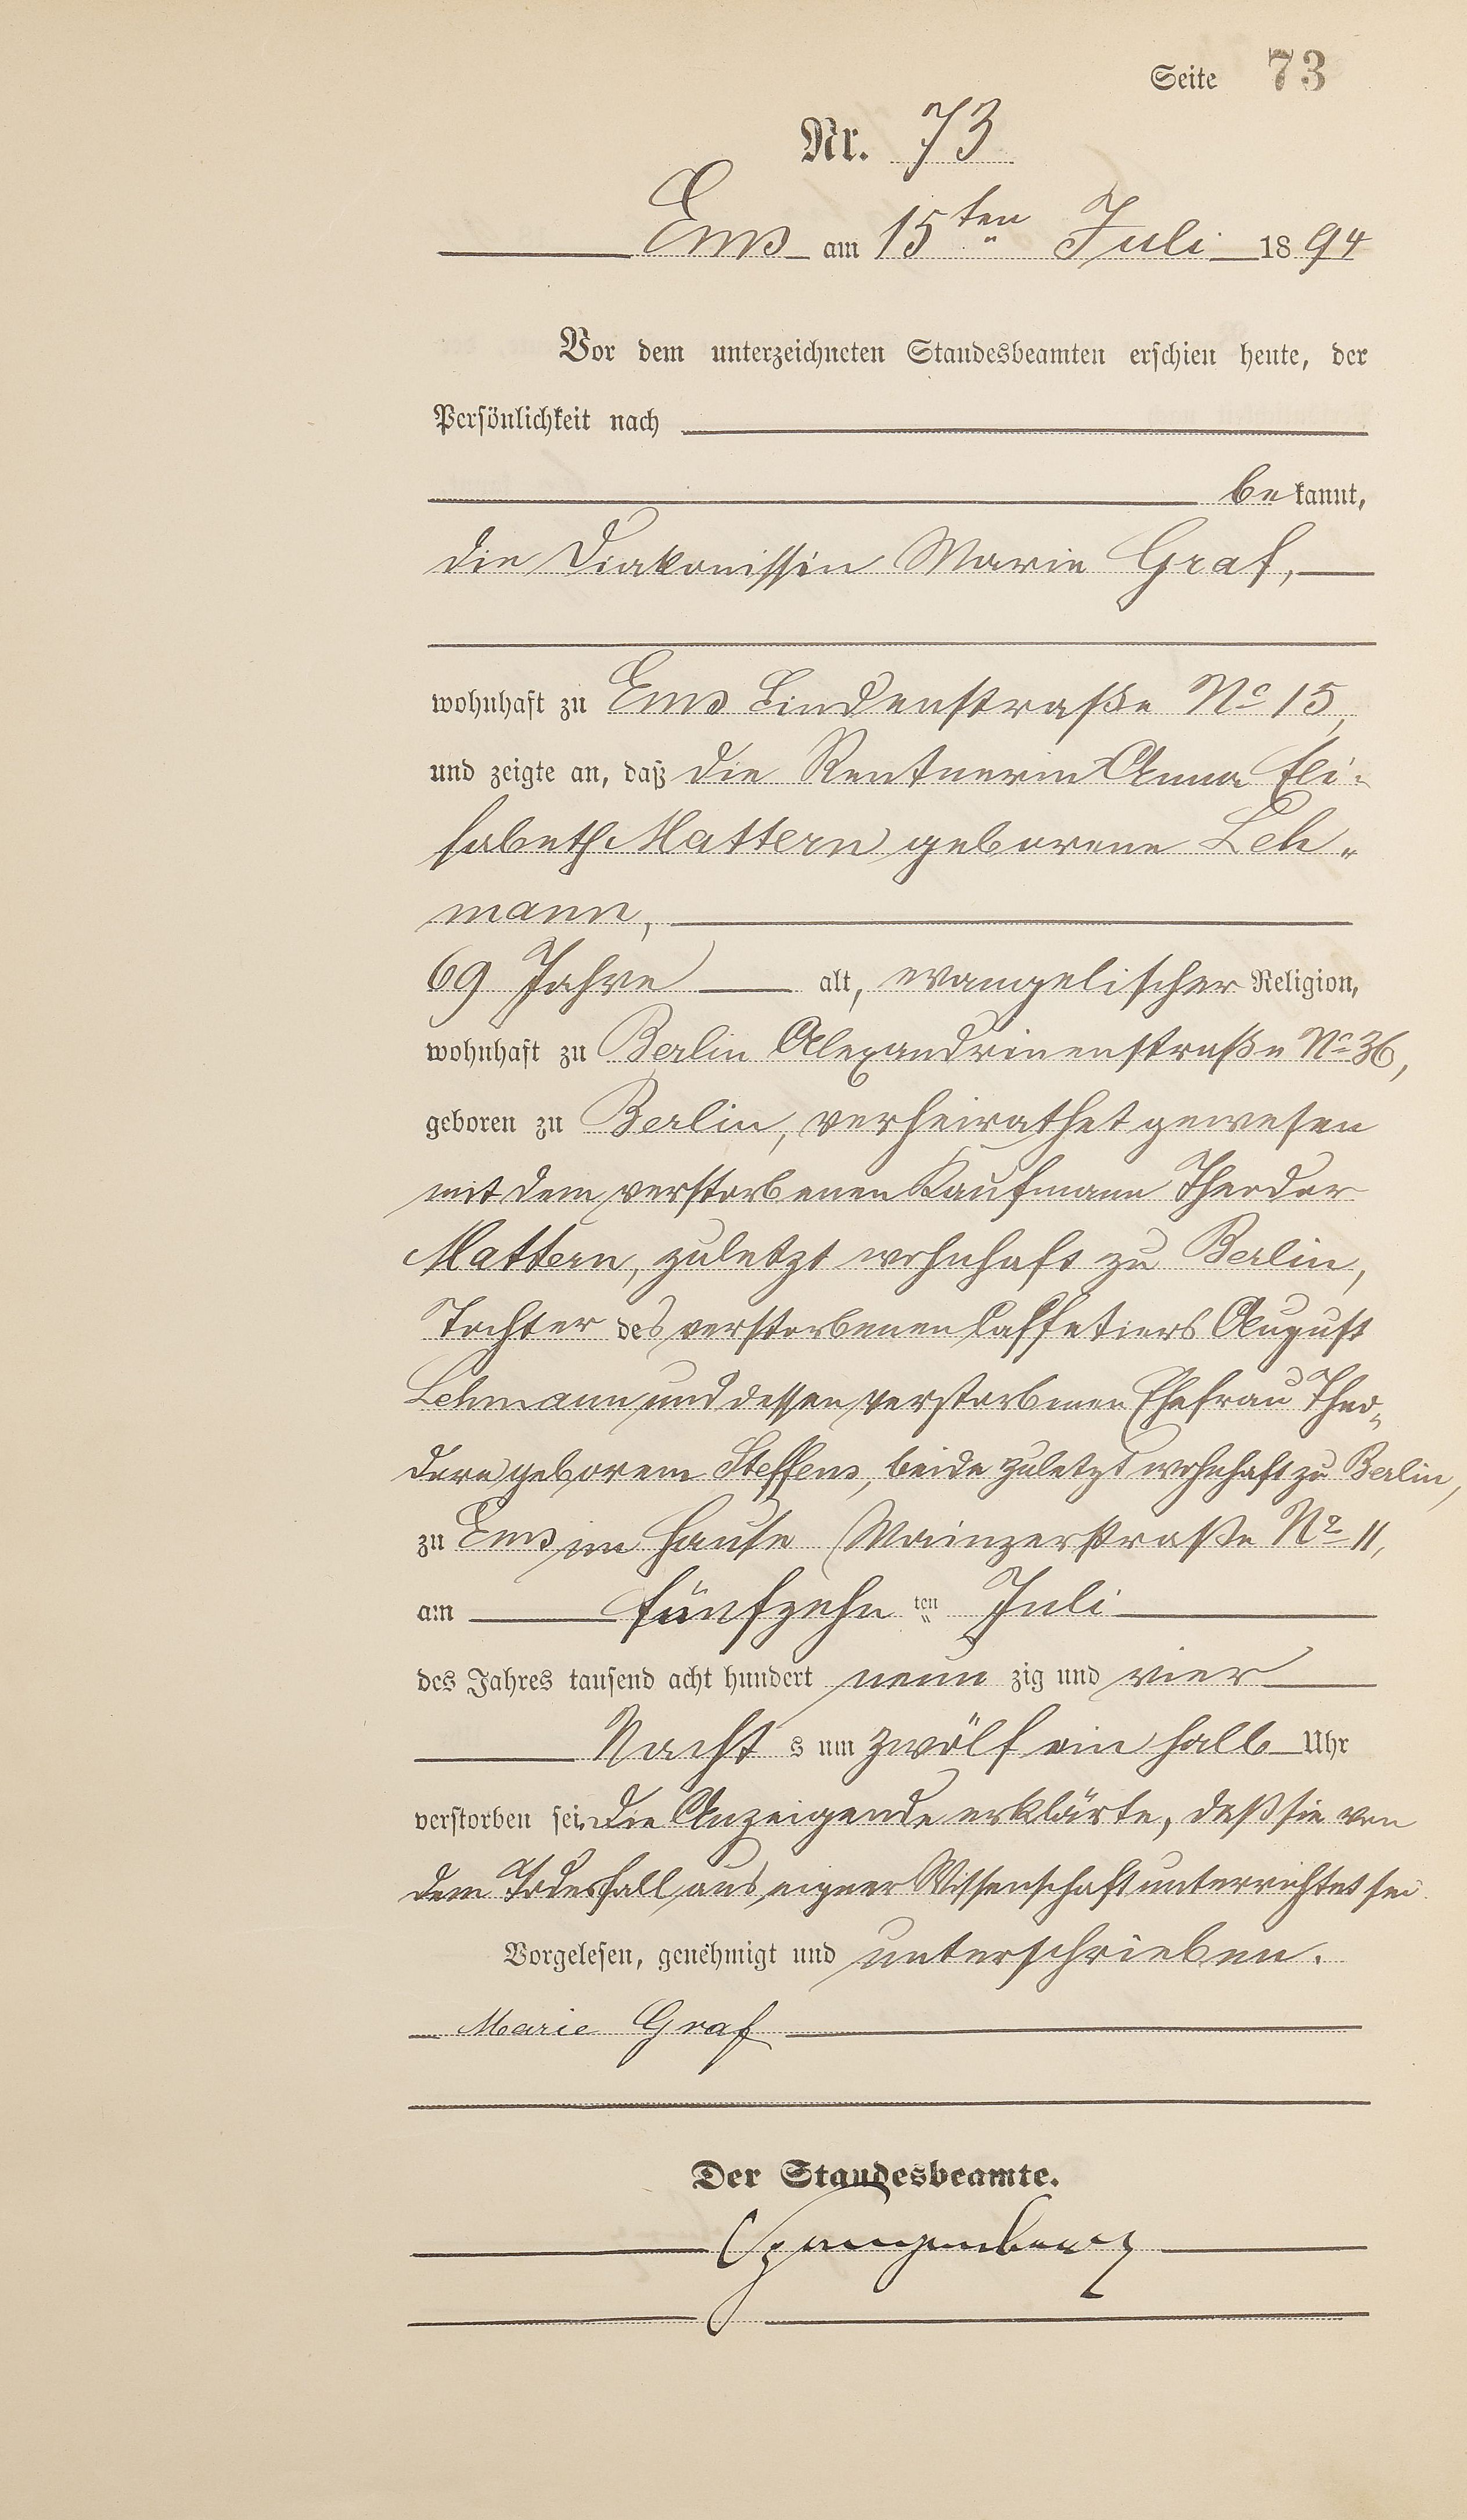 Seite 73
Nr. 73
Ems am 15ten Juli 1894
Vor dem unterzeichneten Standesbeamten erschien heute, der
Persönlichkeit nach
bekannt,
die Diakonissin Marie Graf,
wohnhaft zu Ems Lindenstraße No 15,
und zeigte an, daß die Rentnerin Anna Eli-
sabeth Mattern geborene Leh-
mann,
69 Jahre alt, evangelischer Religion,
wohnhaft zu Berlin Alexandrinenstraße No 36,
geboren zu Berlin, verheirathet gewesen
mit dem verstorbenen Kaufmann Theodor
Mattern, zuletzt wohnhaft zu Berlin,
Tochter des verstorbenen Caffetiers August
Lehmann und dessen verstorbenen Ehefrau Theo-
dore geborene Steffens, beide zuletzt wohnhaft zu Berlin,
zu Ems im Hause Mainzerstraße No 11,
am fünfzehnten Juli
des Jahres tausend acht hundert neunzig und vier
Nachts um zwölf ein halb Uhr
verstorben sei. Die Anzeigende erklärte, daß sie von
dem Todesfall aus eigner Wissenschaft unterrichtet sei
Vorgelesen, genehmigt und unterschrieben.
Marie Graf
Der Standesbeamte.
Spangenberg